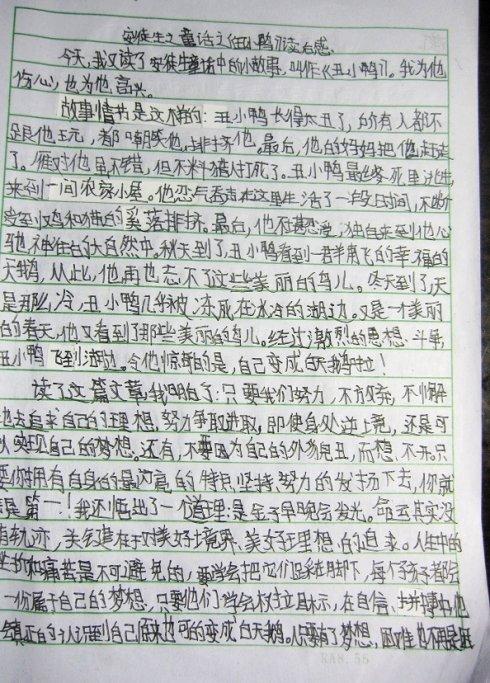 安徒生之童话之丑小鸭读后感
今天,我又读了安徒生童话中的小故事,叫作《丑小鸭》。我为他
伤心,也为他高兴。
故事情节是这样的:丑小鸭长得太丑了,所有人都不
跟他玩,都嘲笑他,排挤他。最后,他的妈妈把他赶走
了。雁对他虽不错,但不料被人打死了。丑小鸭最终死里逃生
来到一间农家小屋。他忍气吞声在这里生活了一段时间,不断
受到鸡和猫的奚落排挤。最后,他不堪忍受,独自来到他心
驰神往的大自然中。秋天到了,丑小鸭看到一群高飞的幸福的
天鹅,从此,他再也忘不了这些美丽的鸟儿。冬天到了,天
是那么冷,丑小鸭几乎被冻死在冰冷的湖边。又是一个美丽
的春天,他又看到了那些美丽的鸟儿。经过激烈的思想斗争,
丑小鸭飞到湖边。令他惊讶的是,自己变成白天鹅啦!
读了这篇文章,我明白了:只要我们努力,不放弃,不懈
地去追求自己的理想,努力争取进取,即使身处逆境,还是可
以实现自己的梦想。还有,不要因为自己的外貌丑,而想不开,只
要你拥有自身的最闪亮的特点,坚持努力的发扬下去,你就
是第一!我还悟出了一个道理:是金子早晚会发光。命运其实没
有轨迹,关键在于对美好境界、美好理想的追求。人生中的
挫折和痛苦是不可避免的,要学会把它们踩在脚下,每个孩子都会
一份属于自己的梦想,只要他们学会树立目标,在自信、拼搏中,他
会真正的认识到自己原来也可以变成白天鹅。人只要有了梦想,困难也不再是
RA8.55